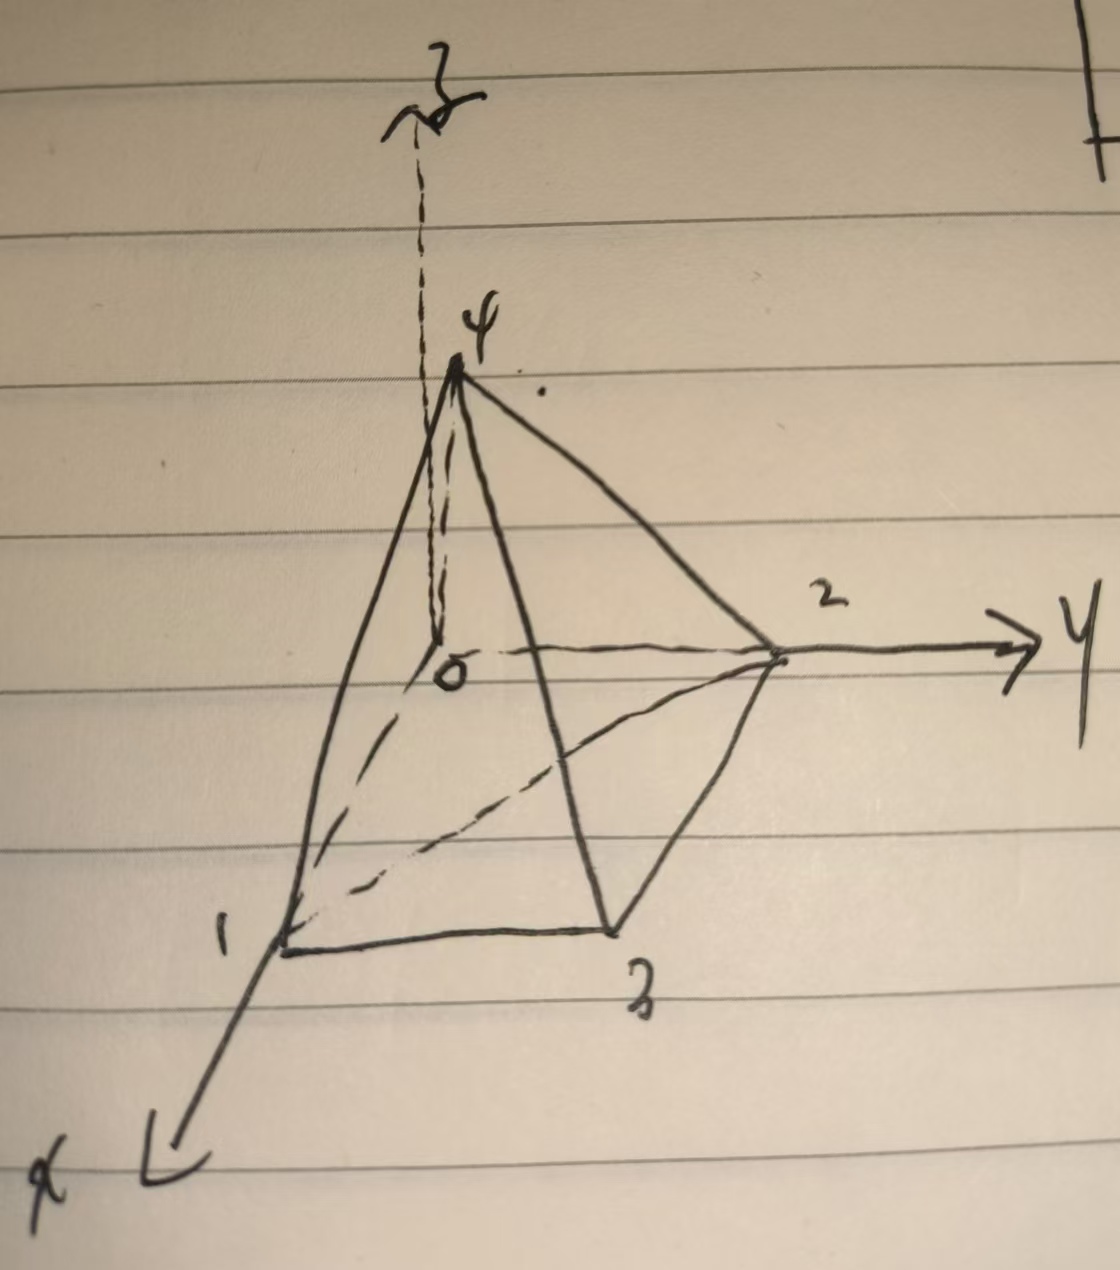 z
4
2
y
0
1
3
x